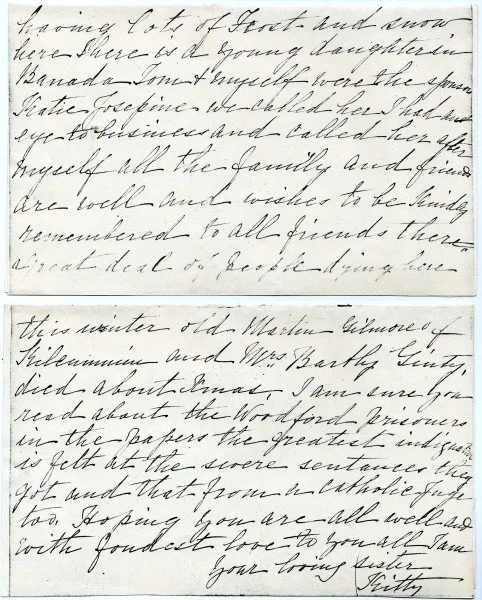 having lots of Frost and snow
here There is a young daughter in
Banada Tom & myself were the sponsors
Katie Josepine we called her I had an
eye to business and called her after
myself all the family and friends
are well and wishes to be Kindly
remembered to all friends there
a great deal of people dying here
this winter old Martin Gilmore of
and Mrs Barthy Ginty,
died about Xmas, I am sure you
read about the Woodford prisoners
in the papers the greatest indignation
is felt at the severe sentances they
got and that from a Catholic Judge
too. Hoping you are all well and
with fondest love to you all I am
Your loving sister
Kitty